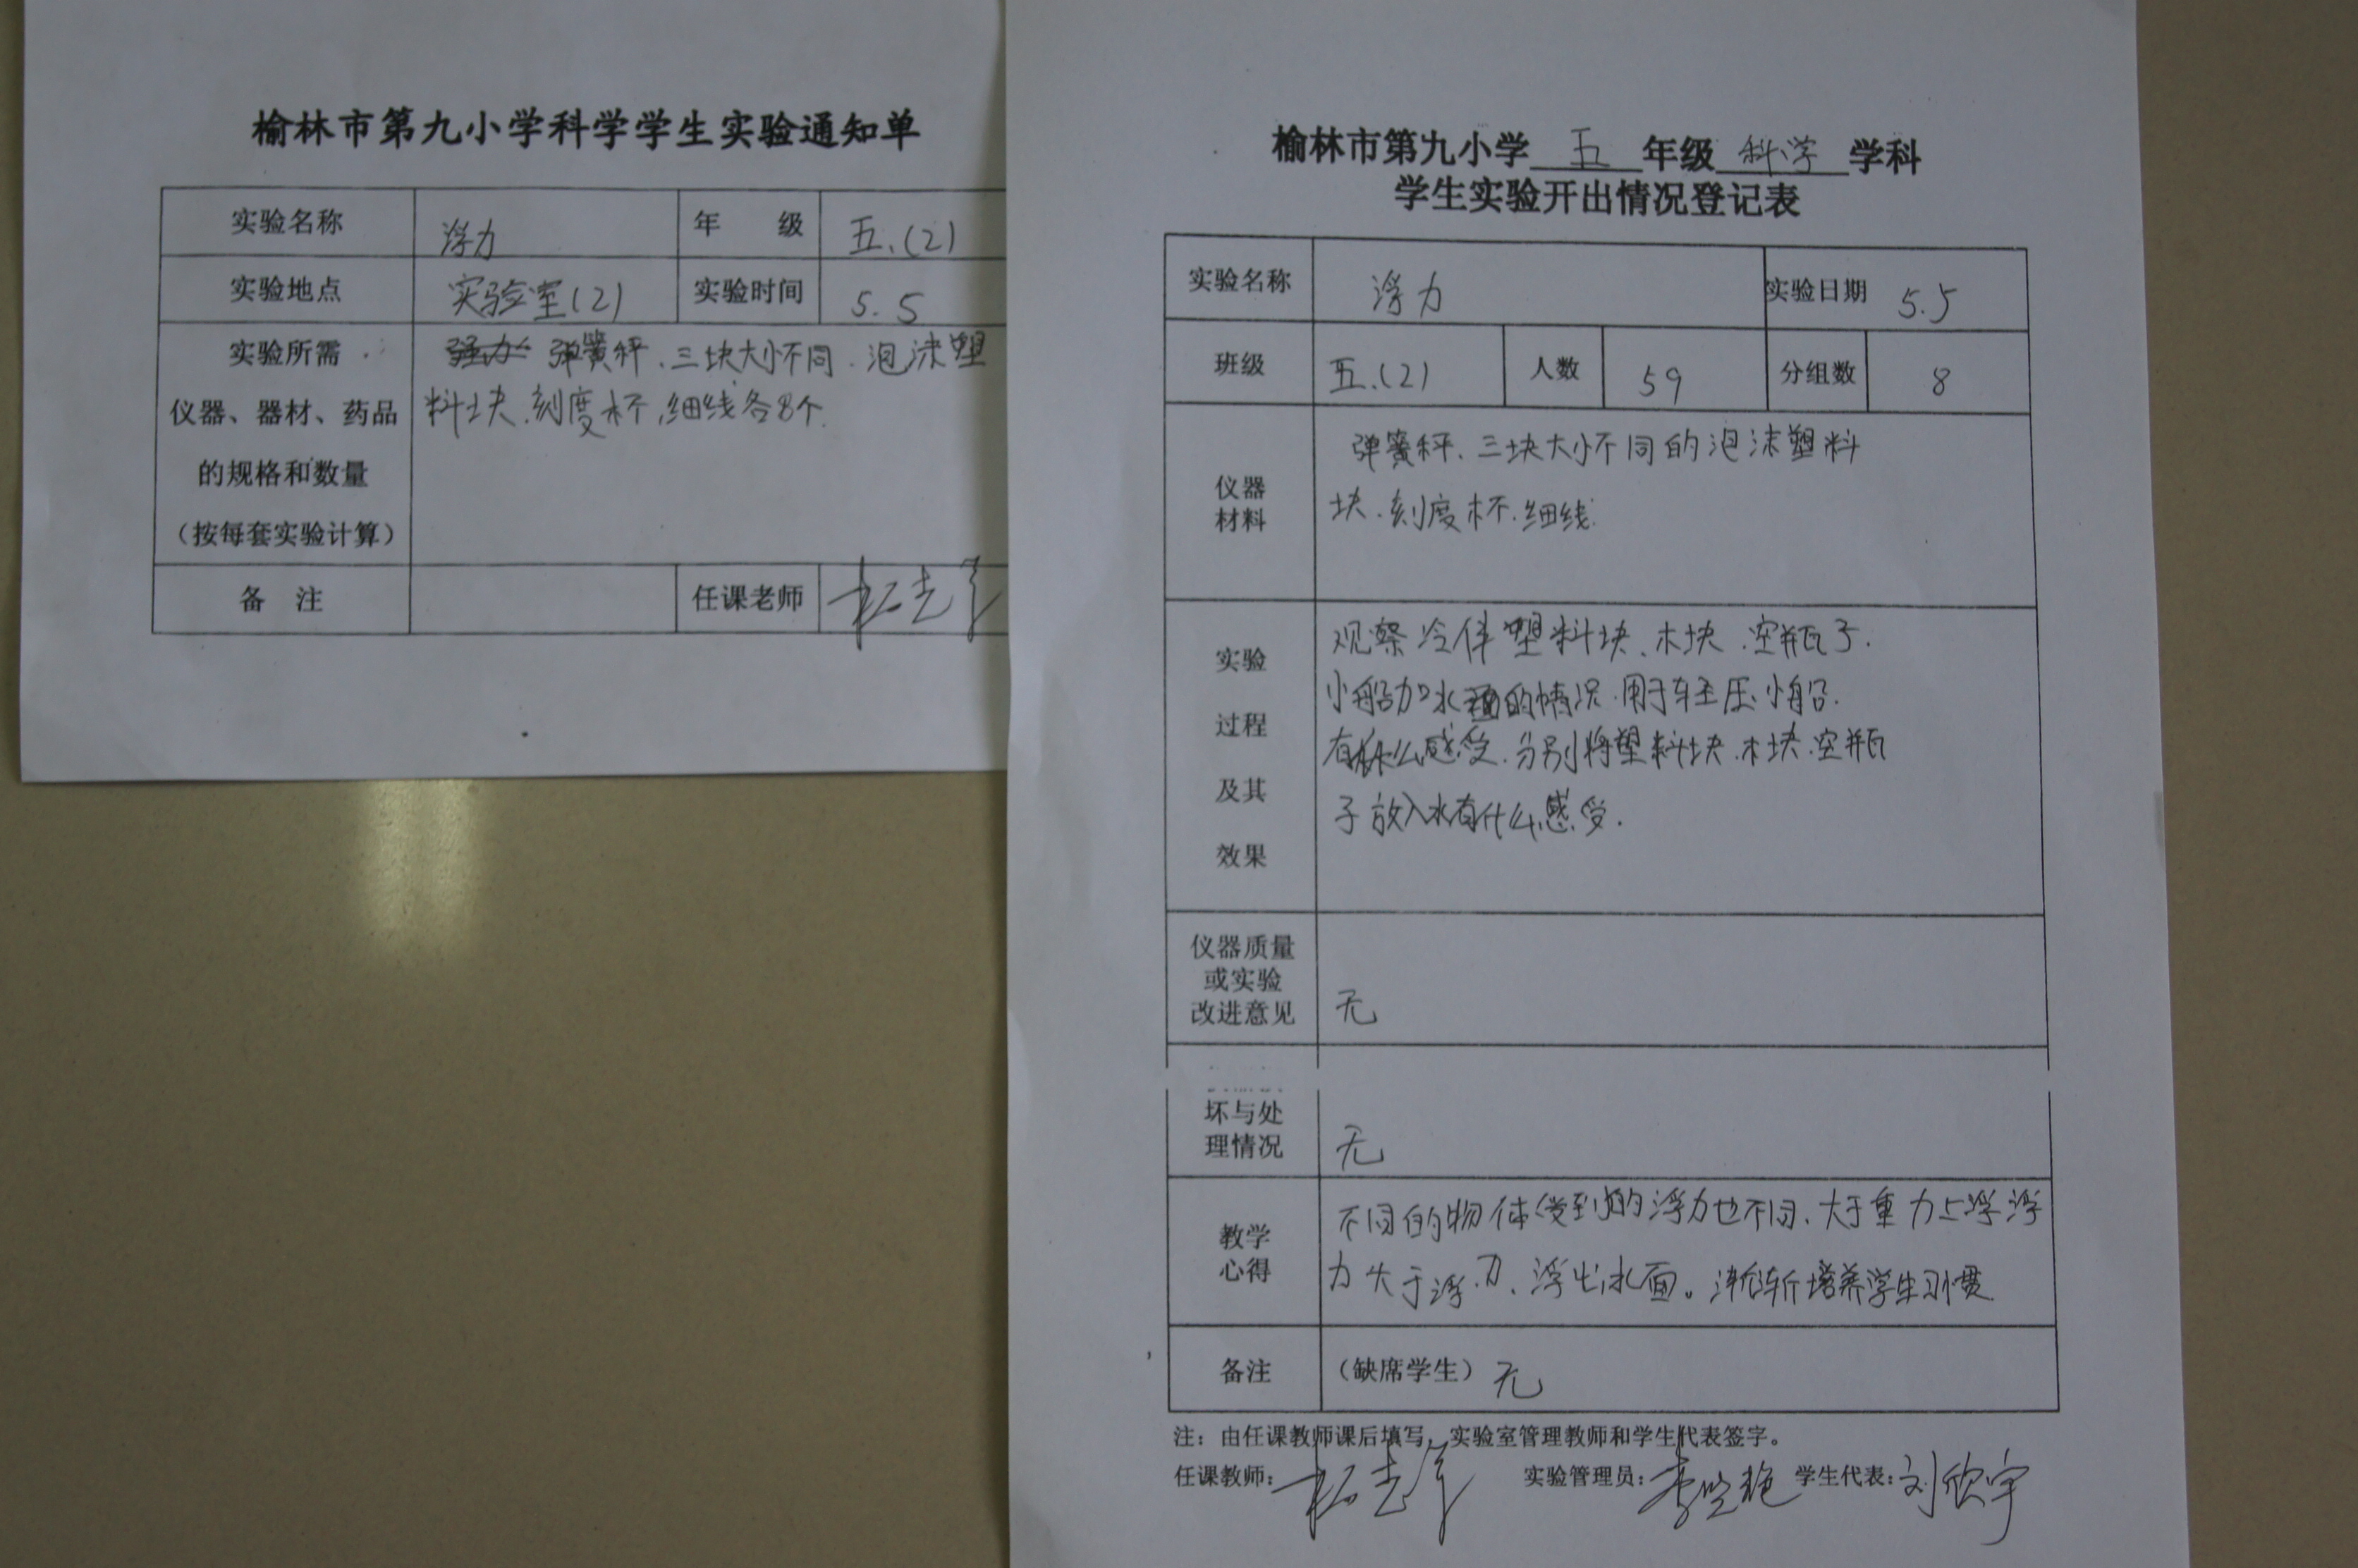 榆林市第九小学科学学生实验通知单
实验名称 浮力 年 级 五.(2)
实验地点 实验室(2) 实验时间 5.5
实验所需
仪器、器材、药品
的规格和数量
（按每套实验计算）
弹簧秤、三块大小不同、泡沫塑
料块、刻度杯、细线各8个.
备 注 任课老师
榆林市第九小学 五 年级 科学 学科
学生实验开出情况登记表
实验名称 浮力 实验日期 5.5
班级 五.(2) 人数 59 分组数 8
仪器
材料
弹簧秤、三块大小不同的泡沫塑料
块、刻度杯、细线.
实验
过程
及其
效果
观察 塑料块、木块、空瓶子.
小船加水 的情况.用手轻压小船.
有什么感受.分别将塑料块.木块.空瓶
子放入水有什么感受.
仪器质量
或实验
改进意见
无
坏与处
理情况
无
教学
心得
不同的物体受到的浮力也不同、大于重力上浮浮
力大于浮力、浮出水面。渐渐培养学生习惯
备注 （缺席学生）无
注：由任课教师课后填写，实验室管理教师和学生代表签字。
任课教师： 实验管理员： 学生代表：刘欣宇